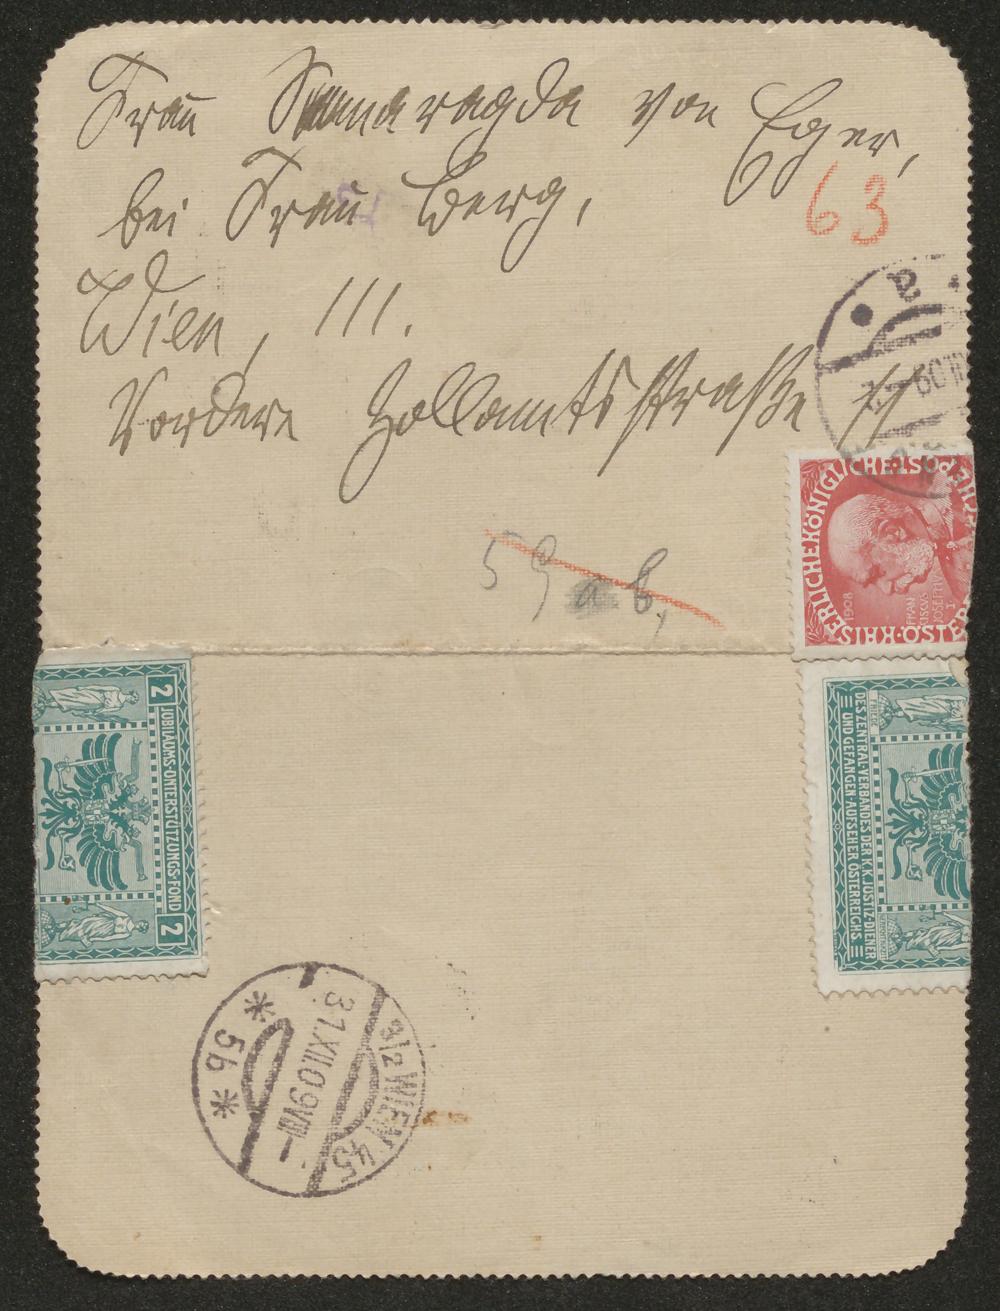 Frau Smaragda von Eger,
bei Frau Berg,
63
Wien, III.
Vordere Zollamtsstraße 11
59 a b,
KAISERLICHE KÖNIGLICHE ÖSTERR
1908
FRAN
CISCVS
JOSEPH
I.
2 JUBILÄUMS-UNTERSTÜTZUNGS-FOND 2
DES ZENTRAL-VERBANDES DER K.K. JUSTIZ-DIENER
UND GEFANGEN-AUFSEHER ÖSTERREICHS
3/2 WIEN 45
31.XII.09 VIII
* 5b *